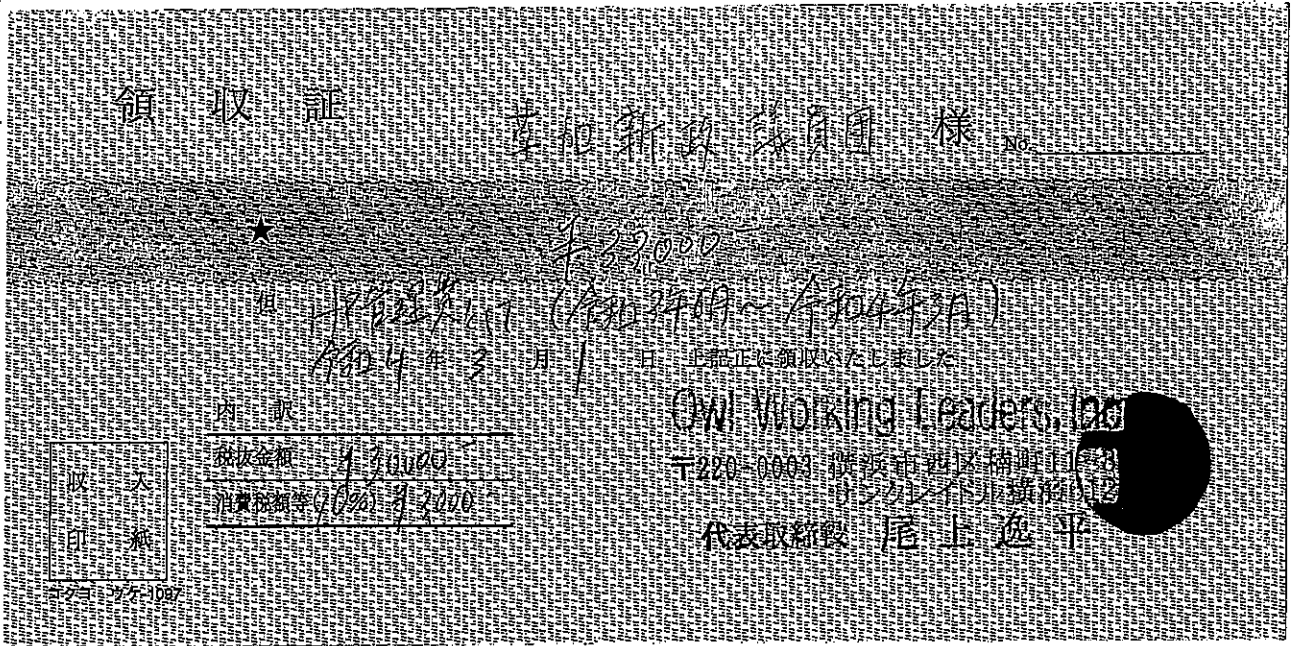 領収証
草加新政議員團 様 No.
★ ¥33000-
但 HP管理費として (令和3年6月～令和4年3月)
令和4年3月1日 上記正に領収いたしました
内訳
税抜金額 ¥30000-
消費税額等(10%) ¥3000
収入
印紙
コクヨ ウケ-1097
Owl Working Leaders, Inc
〒220-0003 横浜市西区楠町11-8
サングレイトル横濱
代表取締役 尾上逸平